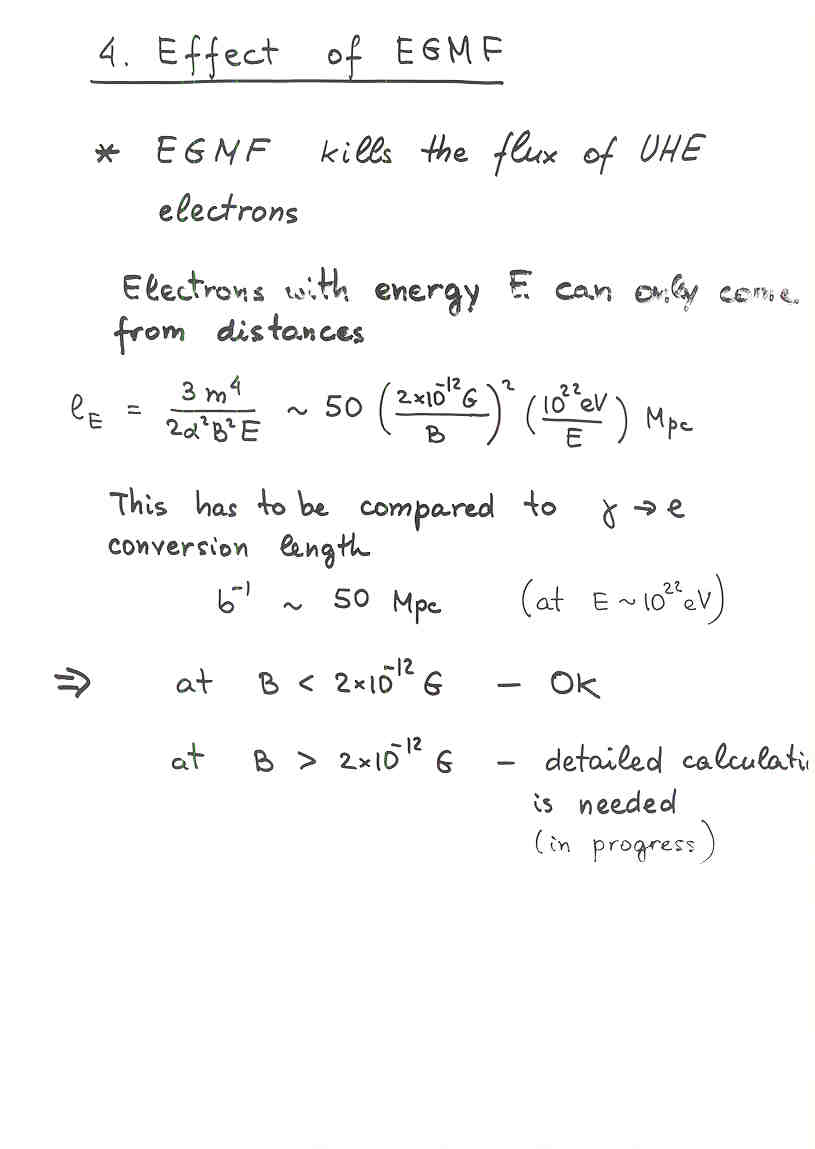 4. Effect of EGMF
* EGMF kills the flux of UHE
electrons
Electrons with energy E can only come
from distances
ℓ_E = 3m⁴ / 2α²B²E ~ 50 (2×10⁻¹² G / B)² (10²² eV / E) Mpc
This has to be compared to γ → e
conversion length
b⁻¹ ~ 50 Mpc (at E ~ 10²² eV)
⇒ at B < 2×10⁻¹² G – OK
at B > 2×10⁻¹² G – detailed calculati
is needed
(in progress)